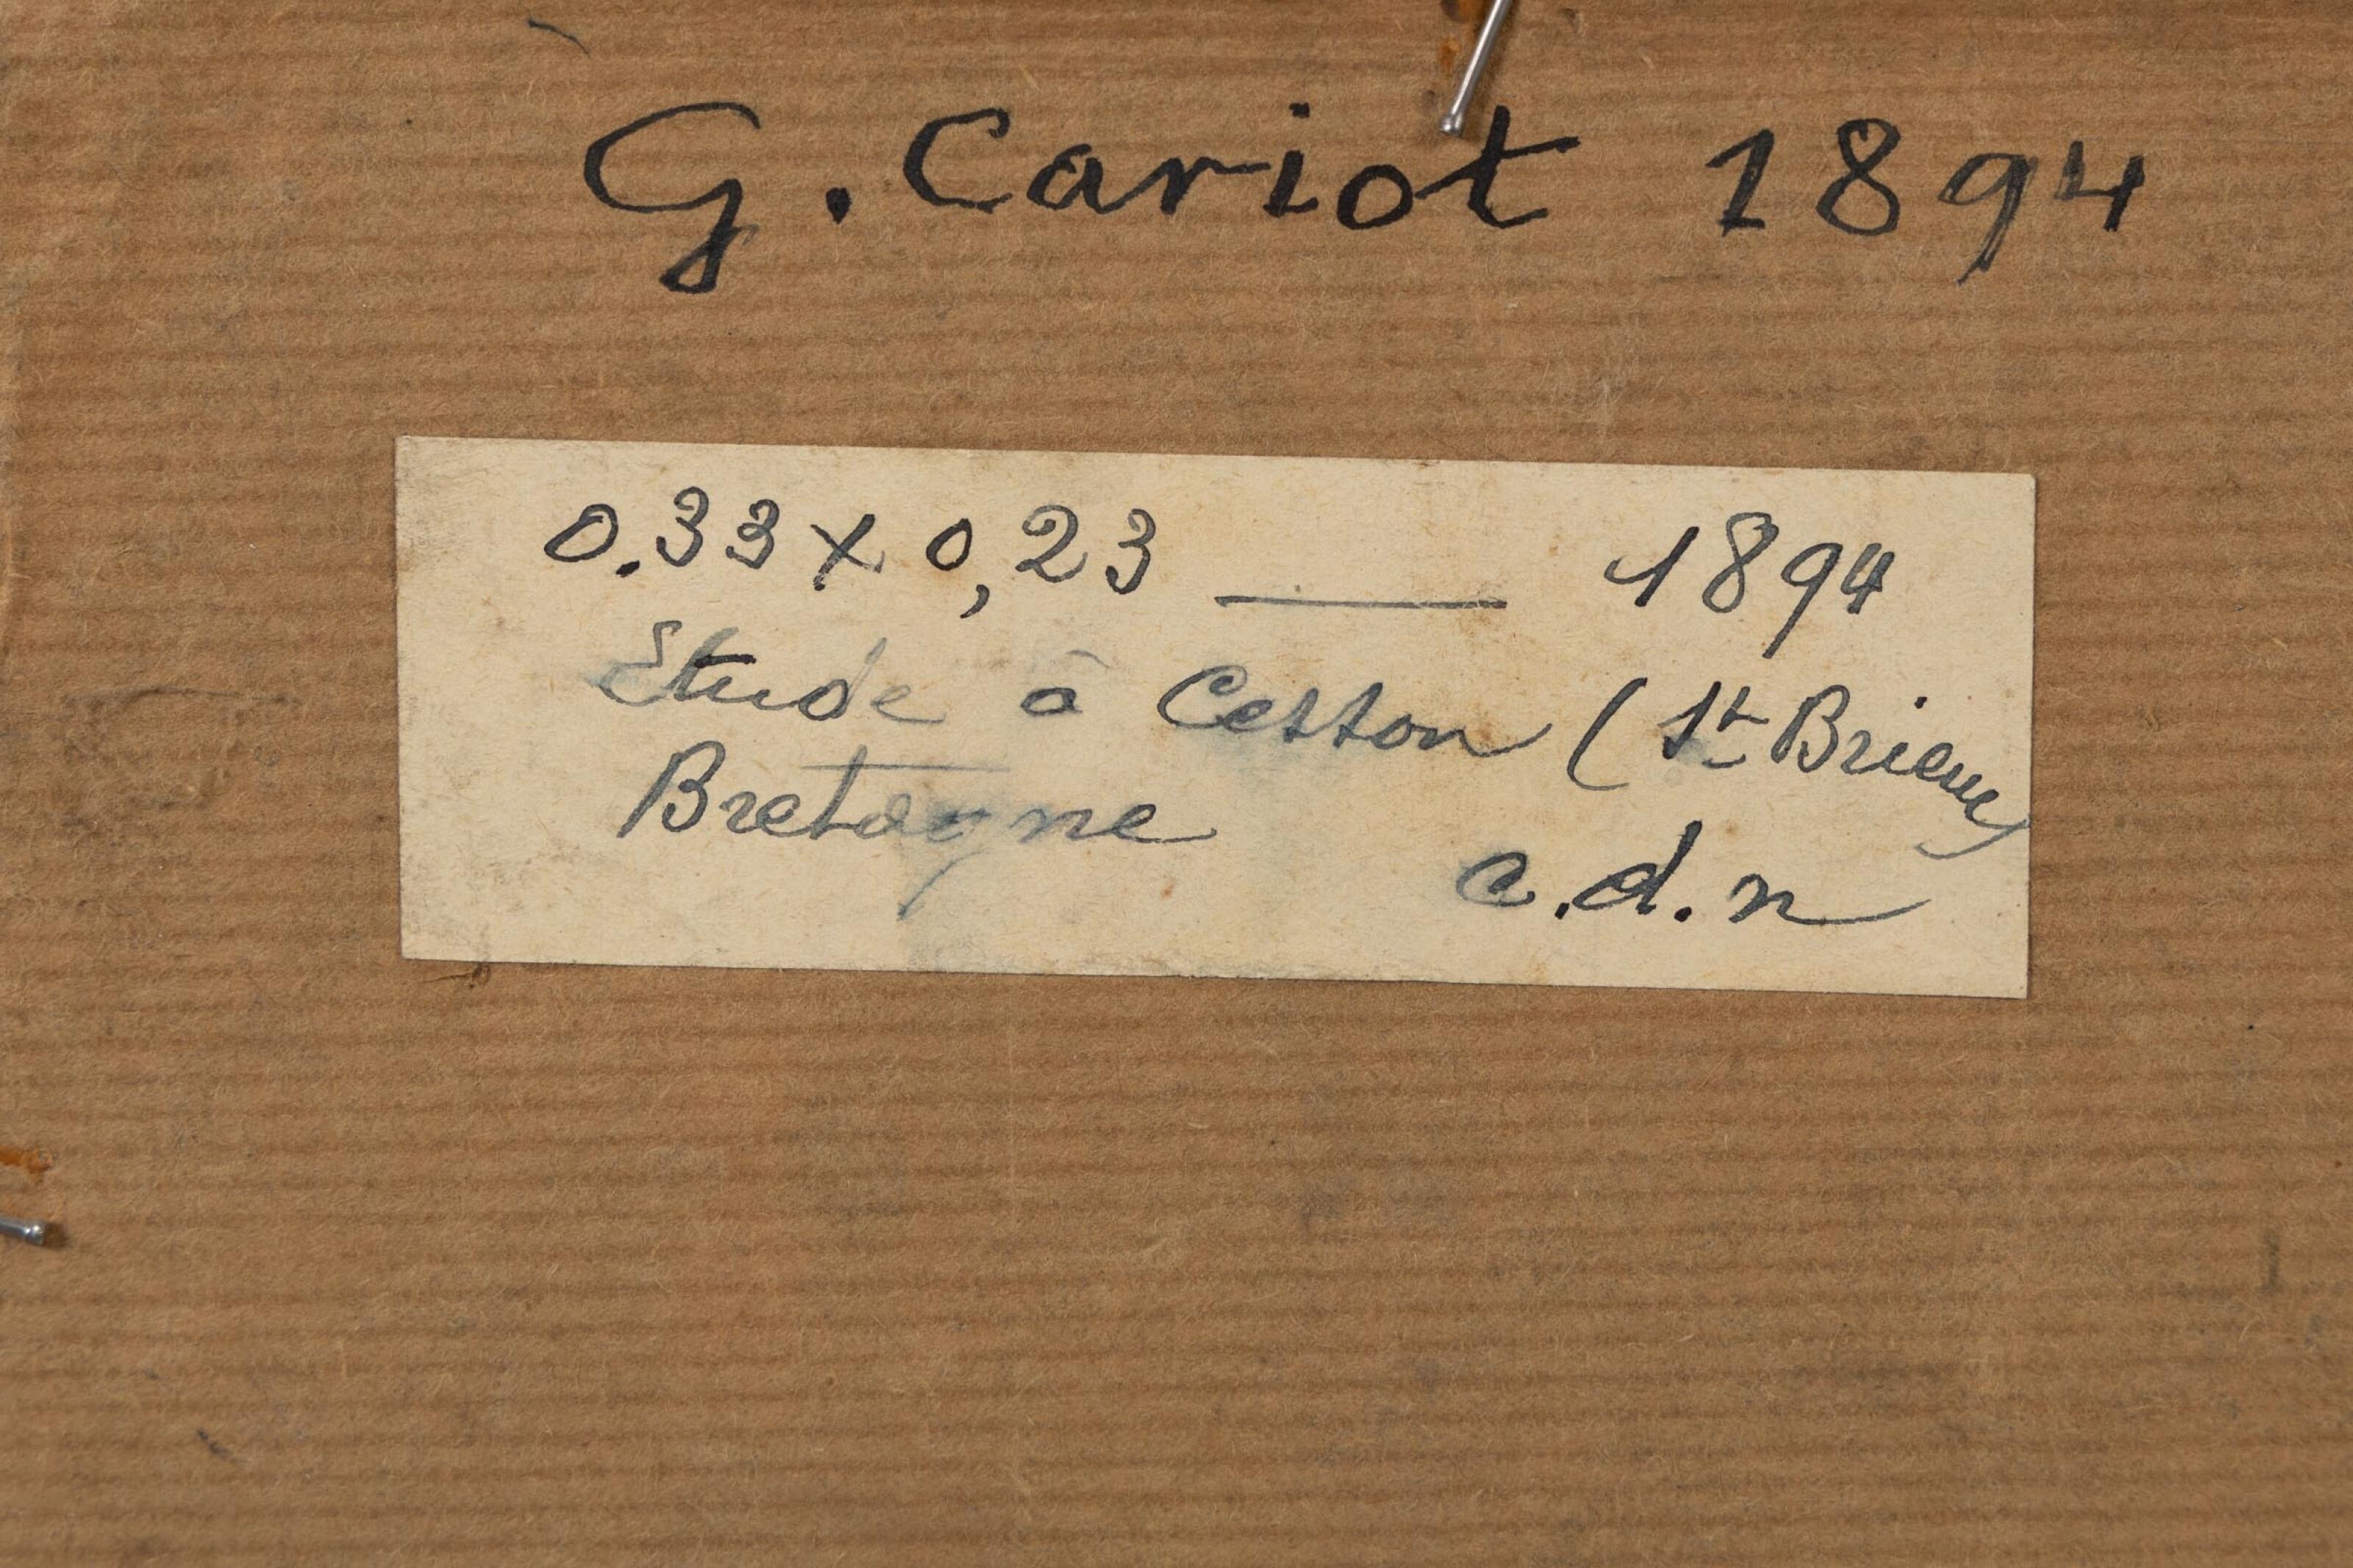 G. Cariot 1894
0.33 x 0,23 ___ 1894
Etude à Cesson (St Brieuc)
Bretagne
c.d.n